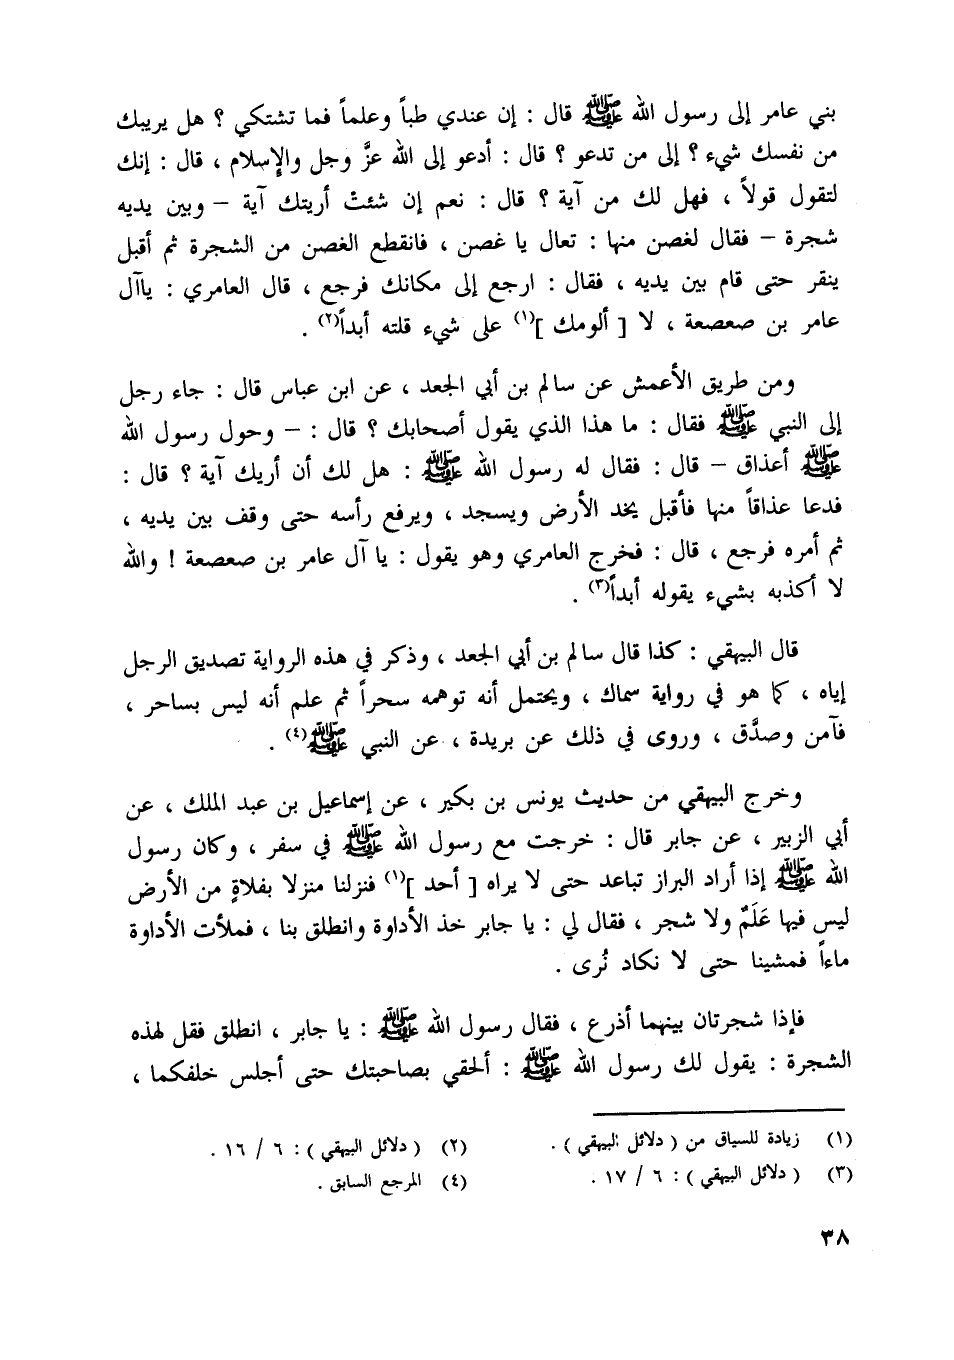 بني عامر إلى رسول الله ﷺ قال : إن عندي طباً وعلماً فما تشتكي ؟ هل يريبك
من نفسك شيء ؟ إلى من تدعو ؟ قال : أدعو إلى الله عزَّ وجل والإسلام ، قال : إنك
لتقول قولاً ، فهل لك من آية ؟ قال : نعم إن شئتْ أريتك آية – وبين يديه
شجرة – فقال لغصن منها : تعال يا غصن ، فانقطع الغصن من الشجرة ثم أقبل
ينقر حتى قام بين يديه ، فقال : ارجع إلى مكانك فرجع ، قال العامري : ياآل
عامر بن صعصعة ، لا [ ألومك ](١) على شيء قلته أبداً(٢) .
ومن طريق الأعمش عن سالم بن أبي الجعد ، عن ابن عباس قال : جاء رجل
إلى النبي ﷺ فقال : ما هذا الذي يقول أصحابك ؟ قال : – وحول رسول الله
ﷺ أعذاق – قال : فقال له رسول الله ﷺ : هل لك أن أريك آية ؟ قال :
فدعا عذاقاً منها فأقبل يخد الأرض ويسجد ، ويرفع رأسه حتى وقف بين يديه ،
ثم أمره فرجع ، قال : فخرج العامري وهو يقول : يا آل عامر بن صعصعة ! والله
لا أكذبه بشيء يقوله أبداً(٣) .
قال البيهقي : كذا قال سالم بن أبي الجعد ، وذكر في هذه الرواية تصديق الرجل
إياه ، كما هو في رواية سماك ، ويحتمل أنه توهمه سحراً ثم علم أنه ليس بساحر ،
فآمن وصدَّق ، وروى في ذلك عن بريدة ، عن النبي ﷺ(٤) .
وخرج البيهقي من حديث يونس بن بكير ، عن إسماعيل بن عبد الملك ، عن
أبي الزبير ، عن جابر قال : خرجت مع رسول الله ﷺ في سفر ، وكان رسول
الله ﷺ إذا أراد البراز تباعد حتى لا يراه [ أحد ](١) فنزلنا منزلا بفلاةٍ من الأرض
ليس فيها عَلَمٌ ولا شجر ، فقال لي : يا جابر خذ الأداوة وانطلق بنا ، فملأت الأداوة
ماءاً فمشينا حتى لا نكاد نُرى .
فإذا شجرتان بينهما أذرع ، فقال رسول الله ﷺ : يا جابر ، انطلق فقل لهذه
الشجرة : يقول لك رسول الله ﷺ : ألحقي بصاحبتك حتى أجلس خلفكما ،
(١) زيادة للسياق من ( دلائل البيهقي ) . (٢) ( دلائل البيهقي ) : ٦ / ١٦ .
(٣) ( دلائل البيهقي ) : ٦ / ١٧ . (٤) المرجع السابق .
٣٨